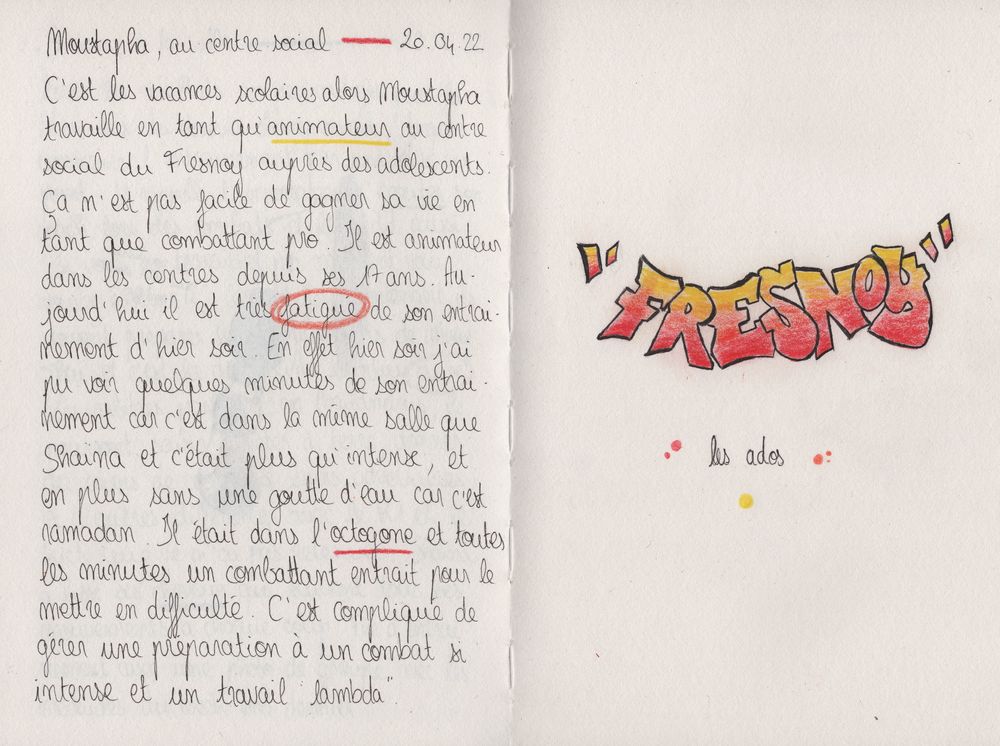 Moustapha, au centre social — 20.04.22
C'est les vacances scolaires alors Moustapha
travaille en tant qu'animateur au centre
social du Fresnoy auprès des adolescents.
Ça n'est pas facile de gagner sa vie en
tant que combattant pro. Il est animateur
dans les centres depuis ses 17 ans. Au-
jourd'hui il est très fatigué de son entrai-
nement d'hier soir. En effet hier soir j'ai
pu voir quelques minutes de son entrai-
nement car c'est dans la même salle que
Shaïna et c'était plus qu'intense, et
en plus sans une goutte d'eau car c'est
ramadan. Il était dans l'octogone et toutes
les minutes un combattant entrait pour le
mettre en difficulté. C'est compliqué de
gérer une préparation à un combat si
intense et un travail "lambda".
"FRESNOY"
les ados